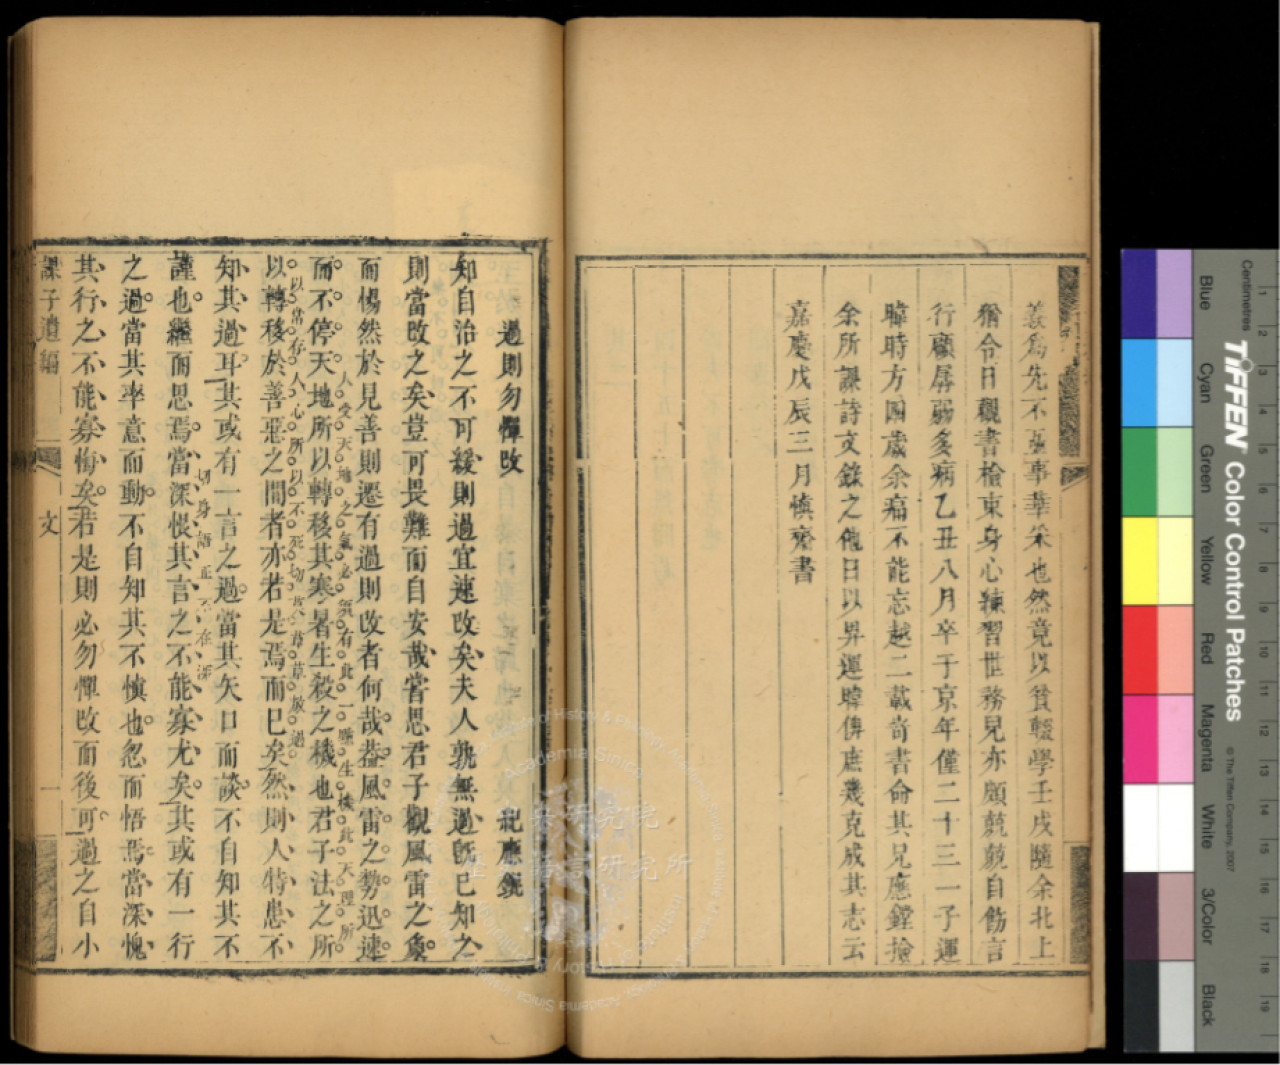 義爲先不亟事華采也然竟以貧輟學壬戌隨余北上
猶令日親書檢束身心練習世務兒亦頗兢兢自飭言
行顧孱弱多病乙丑八月卒于京年僅二十三一子運
暐時方周歲余痛不能忘越二載旹書命其兄應鏜撿
余所課詩文錄之俾日以畀運暐傳庶幾克成其志云
嘉慶戊辰三月慎齋書
過則勿憚改
紀應銑
知自治之不可緩則過宜速改矣夫人孰無過旣已知之
則當改之矣豈可畏難而自安哉嘗思君子觀風雷之象
而惕然於見善則遷有過則改者何哉葢風雷之勢迅速
人受天地之氣必須有此一線生機此天理所
而不停天地所以轉移其寒暑生殺之機也君子法之所
以常存人心所以不死切莫草草放過
以轉移於善惡之間者亦若是焉而已矣然則人特患不
知其過耳其或有一言之過當其矢口而談不自知其不
切身語正不在深
謹也繼而思焉當深恨其言之不能寡尤矣其或有一行
之過當其率意而動不自知其不愼也忽而悟焉當深愧
其行之不能寡悔矣若是則必勿憚改而後可過之自小
課子遺編
文
一
Centimetres
TIFFEN Color Control Patches
© The Tiffen Company, 2007
Blue
Cyan
Green
Yellow
Red
Magenta
White
3/Color
Black
1
2
3
4
5
6
7
8
9
10
11
12
13
14
15
16
17
18
19